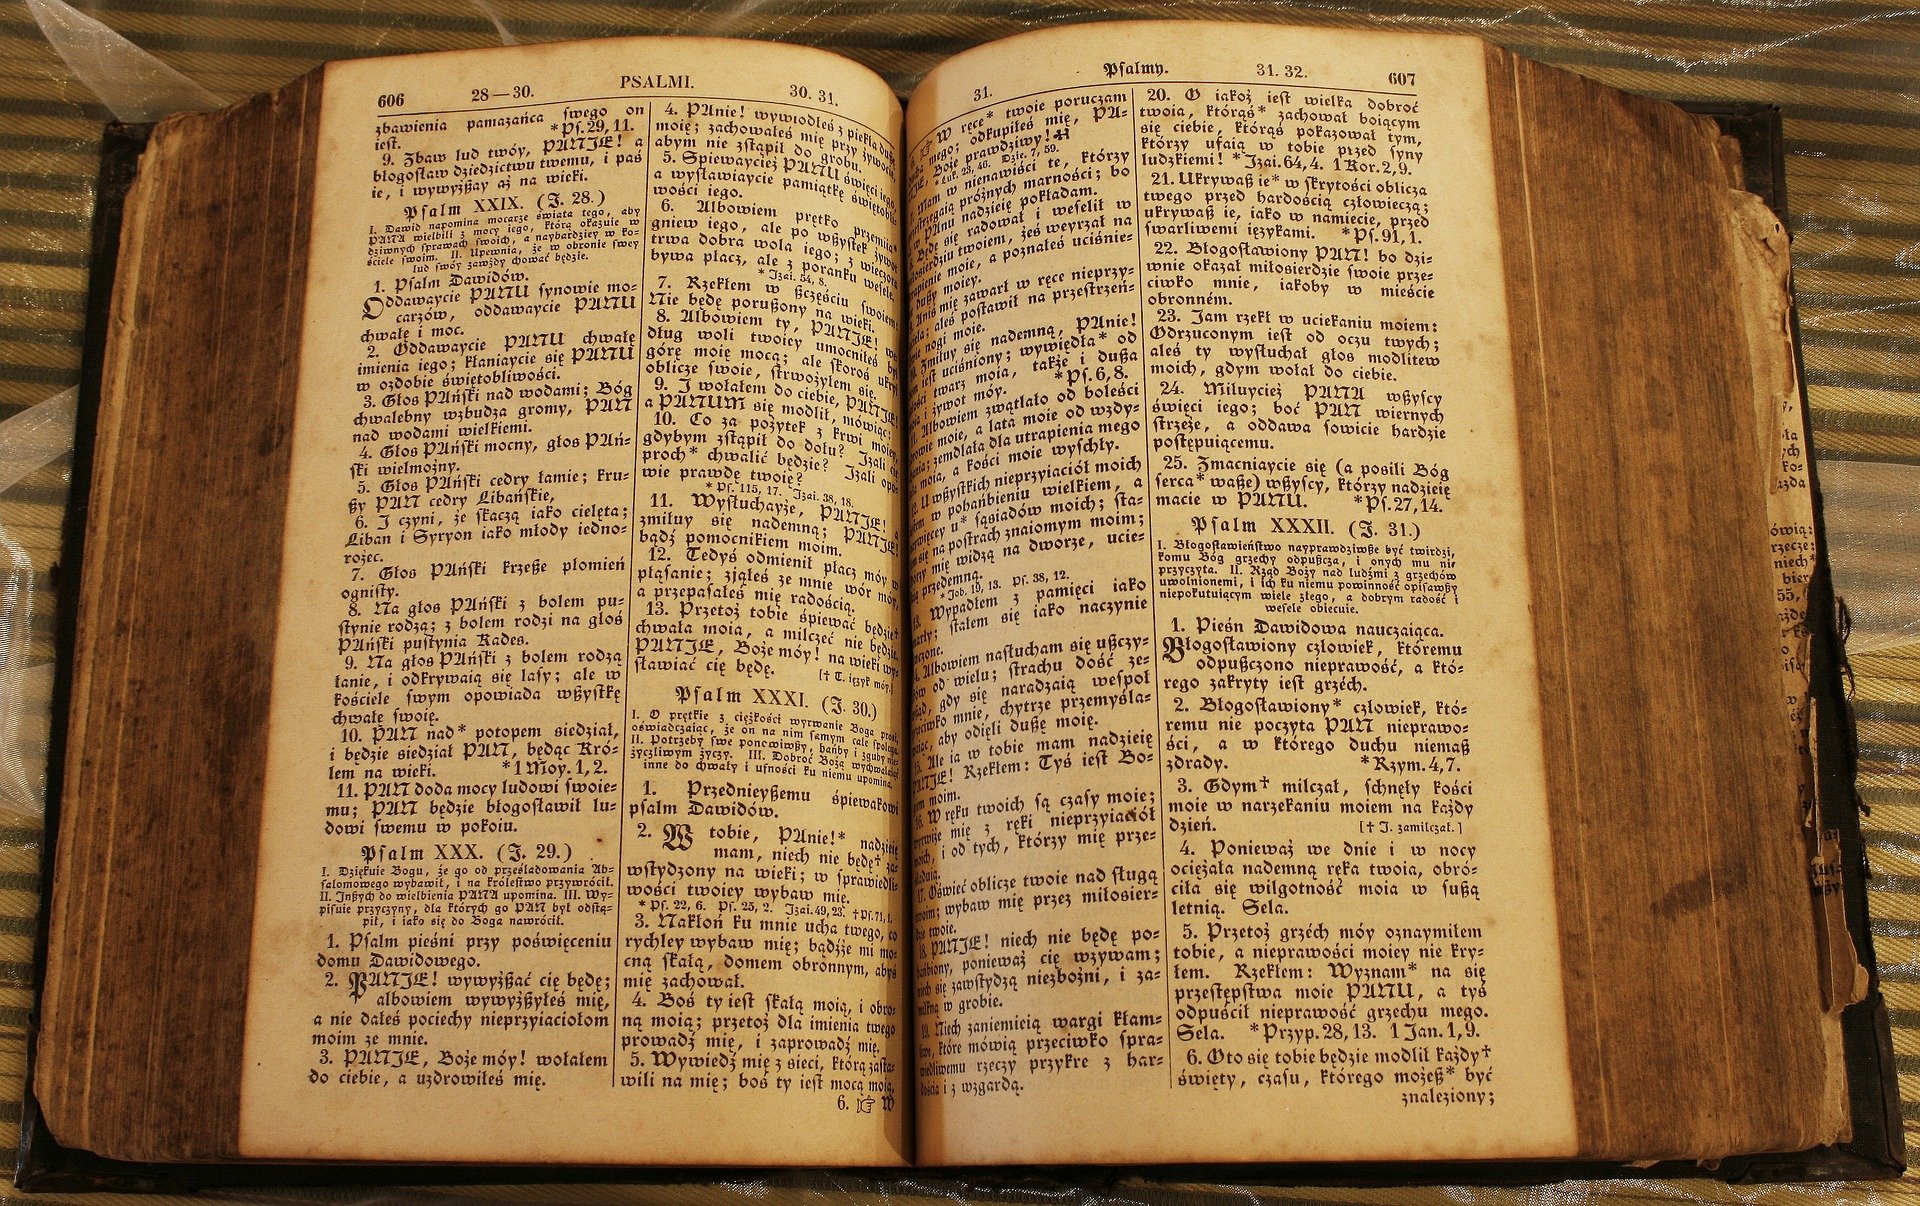 606
28—30.
PSALMI.
30. 31.
zbawienia pamazańca swego on
jest. *Ps. 29, 11.
9. Zbaw lud twóy, PANJE! a
błogosław dziedzictwu twemu, i paś
ie, i wywyższay aż na wieki.
Psalm XXIX. (J. 28.)
I. Dawid napomina mocarze świata tego, aby
PANA wielbili z mocy iego, którą okazuie w
dziwnych sprawach swoich, a naybardziey w ko-
ściele swoim. II. Upewnia, że w obronie swey
lud swóy zawżdy chować będzie.
1. Psalm Dawidów.
Oddawaycie PANU synowie mo-
carzów, oddawaycie PANU
chwałę i moc.
2. Oddawaycie PANU chwałę
imienia iego; kłaniaycie się PANU
w ozdobie świętobliwości.
3. Głos PAński nad wodami; Bóg
chwalebny wzbudza gromy, PAN
nad wodami wielkiemi.
4. Głos PAński mocny, głos PAń-
ski wielmożny.
5. Głos PAński cedry łamie; kru-
szy PAN cedry Libańskie,
6. J czyni, że skaczą iako cielęta;
Liban i Syryon iako młody iedno-
rożec.
7. Głos PAński krzesze płomień
ognisty.
8. Na głos PAński z bolem pu-
stynie rodzą; z bolem rodzi na głos
PAński pustynia Kades.
9. Na głos PAński z bolem rodzą
łanie, i odkrywaią się lasy; ale w
kościele swym opowiada wszystkę
chwałę swoię.
10. PAN nad* potopem siedział,
i będzie siedział PAN, będąc Kró-
lem na wieki. *1 Moy. 1, 2.
11. PAN doda mocy ludowi swoie-
mu; PAN będzie błogosławił lu-
dowi swemu w pokoiu.
Psalm XXX. (J. 29.)
I. Dziękuie Bogu, że go od prześladowania Ab-
salomowego wybawił, i na królestwo przywrócił.
II. Jnszych do wielbienia PANA upomina. III. Wy-
pisuie przyczyny, dla których go PAN był odstą-
pił, i iako się do Boga nawrócił.
1. Psalm pieśni przy poświęceniu
domu Dawidowego.
2. PANJE! wywyższać cię będę;
albowiem wywyższyłeś mię,
a nie dałeś pociechy nieprzyiaciołom
moim ze mnie.
3. PANJE, Boże móy! wołałem
do ciebie, a uzdrowiłeś mię.
4. PAnie! wywiodłeś z piekła duszę
moię; zachowałeś mię przy żywocie,
abym nie zstąpił do grobu.
5. Spiewaycież PANU święci iego,
a wysławiaycie pamiątkę świętobli-
wości iego.
6. Albowiem prętko przemija*
gniew iego, ale po wszystek żywot
trwa dobra wola iego; z wieczora
bywa płacz, ale z poranku wesele.
* Jzai. 54, 8.
7. Rzekłem w szczęściu swoiem:
Nie będę poruszony na wieki.
8. Albowiem ty, PANJE!
dług woli twoiey umocniłeś był
górę moię mocą; ale skoroś ukrył
oblicze swoie, strwożyłem się.
9. J wołałem do ciebie, PANJE!
a PANUM się modlił, mówiąc:
10. Co za pożytek z krwi moiey,
gdybym zstąpił do dołu? Jzali cię
proch* chwalić będzie? Jzali opo-
wie prawdę twoię?
* Ps. 115, 17. Jzai. 38, 18.
11. Wysłuchayże, PANJE! a
zmiłuy się nademną; PANJE!
bądź pomocnikiem moim.
12. Tedyś odmienił płacz móy w
pląsanie; zjąłeś ze mnie wór móy,
a przepasałeś mię radością.
13. Przetoż tobie śpiewać będzie†
chwała moia, a milczeć nie będzie.
PANJE, Boże móy! na wieki wy-
sławiać cię będę. [† T. ięzyk móy.]
Psalm XXXI. (J. 30.)
I. O prętkie z ciężkości wyrwanie Boga prosi,
oświadczając, że on na nim samym cale spolega.
II. Potrzeby swe ponowiwszy, hańby i zguby nie-
życzliwym życzy. III. Dobroć Bożą wychwalając
inne do chwały i ufności ku niemu upomina.
1. Przednieyszemu śpiewakowi
psalm Dawidów.
2. W tobie, PAnie!* nadzieię
mam, niech nie będę† za-
wstydzony na wieki; w sprawiedli-
wości twoiey wybaw mię.
* Ps. 22, 6. Ps. 25, 2. Jzai. 49, 23. †Ps. 71, 1.
3. Nakłoń ku mnie ucha twego, co
rychley wybaw mię; bądźże mi mo-
cną skałą, domem obronnym, abyś
mię zachował.
4. Boś ty iest skałą moią, i obro-
ną moią; przetoż dla imienia twego
prowadź mię, i zaprowadź mię.
5. Wywiedź mię z sieci, którą zasta-
wili na mię; boś ty iest mocą moią,
6. ☞ W
31.
Psalmy.
31. 32.
607
6. ☞ W ręce* twoie poruczam
mego; odkupiłeś mię, PA-
NJE, Boże prawdziwy!
* Łuk. 23, 46. Dzie. 7, 59.
7. Mam w nienawiści te, którzy
przestrzegaią próżnych marności; bo
w PAnu nadzieię pokładam.
8. Będę się radował i weselił w
miłosierdziu twoiem, żeś weyrzał na
utrapienie moie, a poznałeś uciśnie-
duszy moiey.
9. Aniś mię zawarł w ręce nieprzy-
iaciela; aleś postawił na przestrzeń-
nogi moie.
10. Zmiłuy się nademną, PAnie!
iest uciśniony; wywiędła* od
żałości twarz moia, także i dusza
moia i żywot móy. *Ps. 6, 8.
11. Albowiem zwątlało od boleści
zdrowie moie, a lata moie od wzdy-
chania; zemdlała dla utrapienia mego
siła moia, a kości moie wyschły.
12. U wszystkich nieprzyiaciół moich
w pohańbieniu wielkiem, a
nawięcey u* sąsiadów moich; sta-
łem się na postrach znaiomym moim;
którzy mię widzą na dworze, ucie-
kaią przedemną.
* Job. 19, 13. Ps. 38, 12.
13. Wypadłem z pamięci iako
umarły; stałem się iako naczynie
stłuczone.
14. Albowiem nasłucham się uszczy-
pków od wielu; strachu dość ze-
wsząd, gdy się naradzaią wespoł
przeciwko mnie, chytrze przemyśla-
iąc, aby odięli duszę moię.
15. Ale ia w tobie mam nadzieię
PANJE! Rzekłem: Tyś iest Bo-
giem moim.
16. W ręku twoich są czasy moie;
wyrwiże mię z ręki nieprzyiaciół
moich, i od tych, którzy mię prze-
śladuią.
17. Oświeć oblicze twoie nad sługą
twoim; wybaw mię przez miłosier-
dzie twoie.
18. PANJE! niech nie będę po-
hańbiony, ponieważ cię wzywam;
niech się zawstydzą niezbożni, i za-
milkną w grobie.
19. Niech zaniemieią wargi kłam-
liwe, które mówią przeciwko spra-
wiedliwemu rzeczy przykre z har-
dością i z wzgardą.
20. O iakoż iest wielka dobroć
twoia, którąś* zachował boiącym
się ciebie, którąś pokazował tym,
którzy ufaią w tobie przed syny
ludzkiemi! *Jzai. 64, 4. 1 Kor. 2, 9.
21. Ukrywasz ie* w skrytości oblicza
twego przed hardością człowieczą;
ukrywasz ie, iako w namiecie, przed
swarliwemi ięzykami. *Ps. 91, 1.
22. Błogosławiony PAN! bo dzi-
wnie okazał miłosierdzie swoie prze-
ciwko mnie, iakoby w mieście
obronném.
23. Jam rzekł w uciekaniu moiem:
Odrzuconym iest od oczu twych;
aleś ty wysłuchał głos modlitew
moich, gdym wołał do ciebie.
24. Miłuycież PANA wszyscy
święci iego; boć PAN wiernych
strzeże, a oddawa sowicie hardzie
postępuiącemu.
25. Zmacniaycie się (a posili Bóg
serca* wasze) wszyscy, którzy nadzieię
macie w PANU. *Ps. 27, 14.
Psalm XXXII. (J. 31.)
I. Błogosławieństwo nayprawdziwsze być twirdzi,
komu Bóg grzechy odpuszcza, i onych mu nie
przyczyta. II. Rząd Boży nad ludźmi z grzechów
uwolnionemi, i ich ku niemu powinność opisawszy
niepokutuiącym wiele złego, a dobrym radość i
wesele obiecuie.
1. Pieśń Dawidowa nauczaiąca.
Błogosławiony człowiek, któremu
odpuszczono nieprawość, a któ-
rego zakryty iest grzéch.
2. Błogosławiony* człowiek, któ-
remu nie poczyta PAN nieprawo-
ści, a w którego duchu niemasz
zdrady. *Rzym. 4, 7.
3. Gdym† milczał, schnęły kości
moie w narzekaniu moiem na każdy
dzień. [† J. zamilczał.]
4. Ponieważ we dnie i w nocy
ociężała nademną ręka twoia, obró-
ciła się wilgotność moia w suszą
letnią. Sela.
5. Przetoż grzéch móy oznaymiłem
tobie, a nieprawości moiey nie kry-
łem. Rzekłem: Wyznam* na się
przestępstwa moie PANU, a tyś
odpuścił nieprawość grzechu mego.
Sela. *Przyp. 28, 13. 1 Jan. 1, 9.
6. Oto się tobie będzie modlił każdy†
święty, czasu, którego możesz* być
znaleziony;